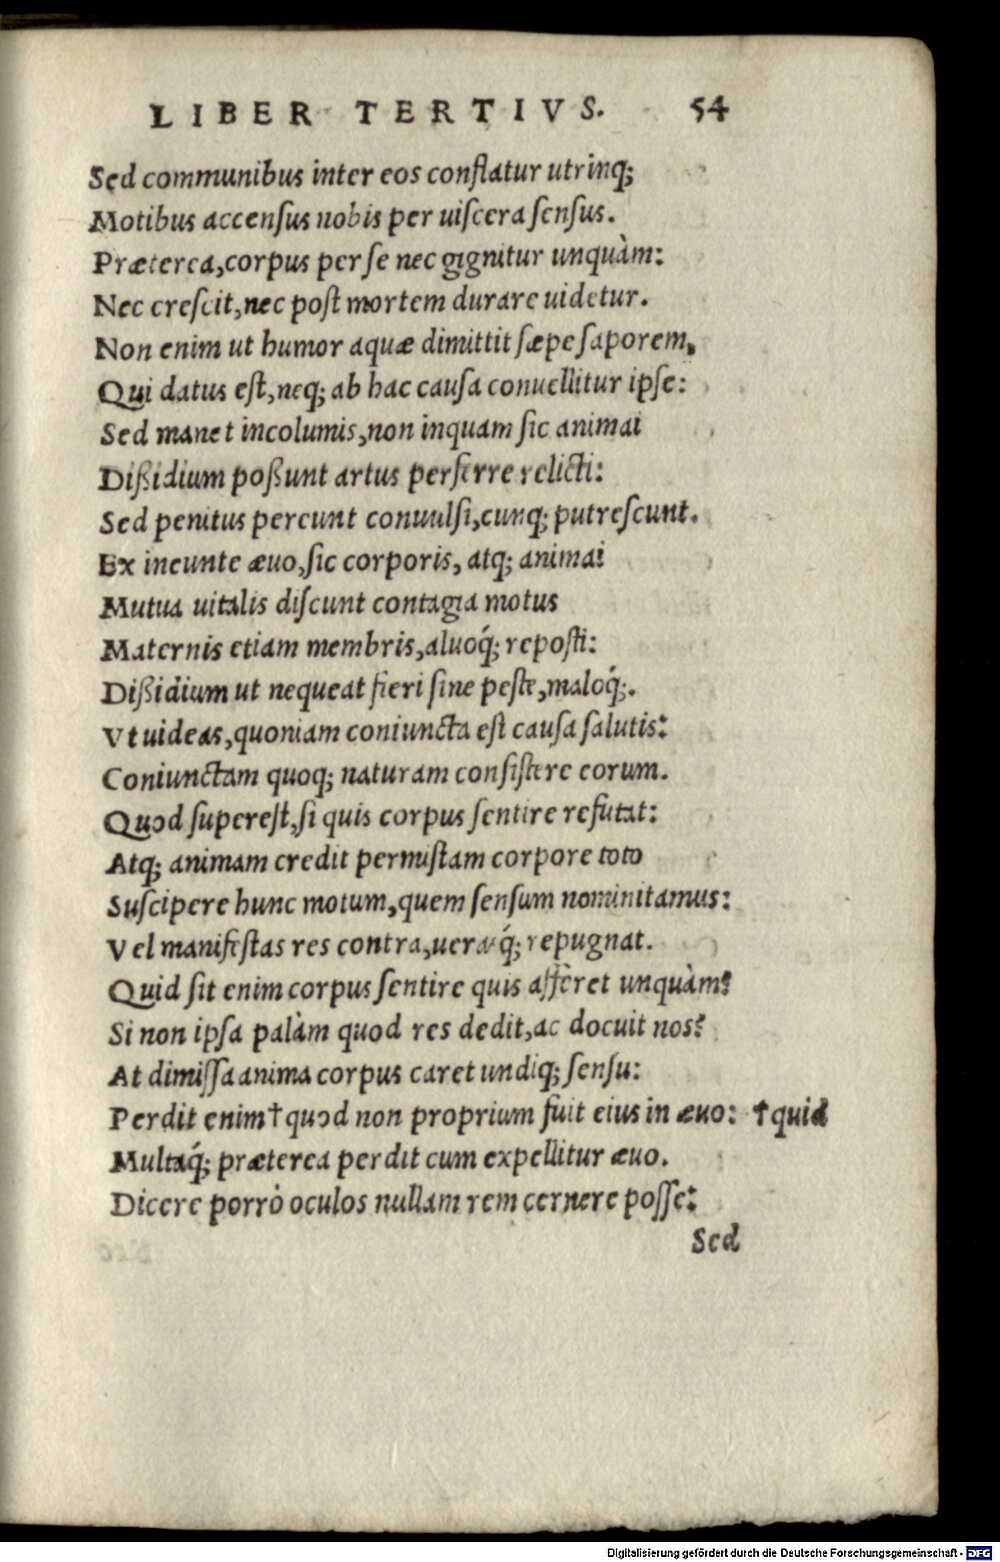 LIBER TERTIVS. 54
Sed communibus inter eos conflatur utrinq;
Motibus accenſus nobis per uiſcera ſenſus.
Præterea, corpus per ſe nec gignitur unquàm:
Nec creſcit, nec poſt mortem durare uidetur.
Non enim ut humor aquæ dimittit ſæpe ſaporem,
Qui datus eſt, neq; ab hac cauſa conuellitur ipſe:
Sed manet incolumis, non inquam ſic animai
Dißidium poßunt artus perferre relicti:
Sed penitus pereunt conuulſi, cunq; putreſcunt.
Ex ineunte æuo, ſic corporis, atq; animai
Mutua uitalis diſcunt contagia motus
Maternis etiam membris, aluoq́; repoſti:
Dißidium ut nequeat fieri ſine peſte, maloq́;.
Vt uideas, quoniam coniuncta eſt cauſa ſalutis:
Coniunctam quoq; naturam conſiſtere eorum.
Quod ſupereſt, ſi quis corpus ſentire refutat:
Atq; animam credit permiſtam corpore toto
Suſcipere hunc motum, quem ſenſum nominitamus:
Vel manifeſtas res contra, ueraſq́; repugnat.
Quid ſit enim corpus ſentire quis afferet unquàm?
Si non ipſa palàm quod res dedit, ac docuit nos?
At dimiſſa anima corpus caret undiq; ſenſu:
Perdit enim † quod non proprium fuit eius in æuo: † quid
Multaq́; præterea perdit cum expellitur æuo.
Dicere porrò oculos nullam rem cernere poſſe:
Sed
Digitalisierung gefördert durch die Deutsche Forschungsgemeinschaft - DFG